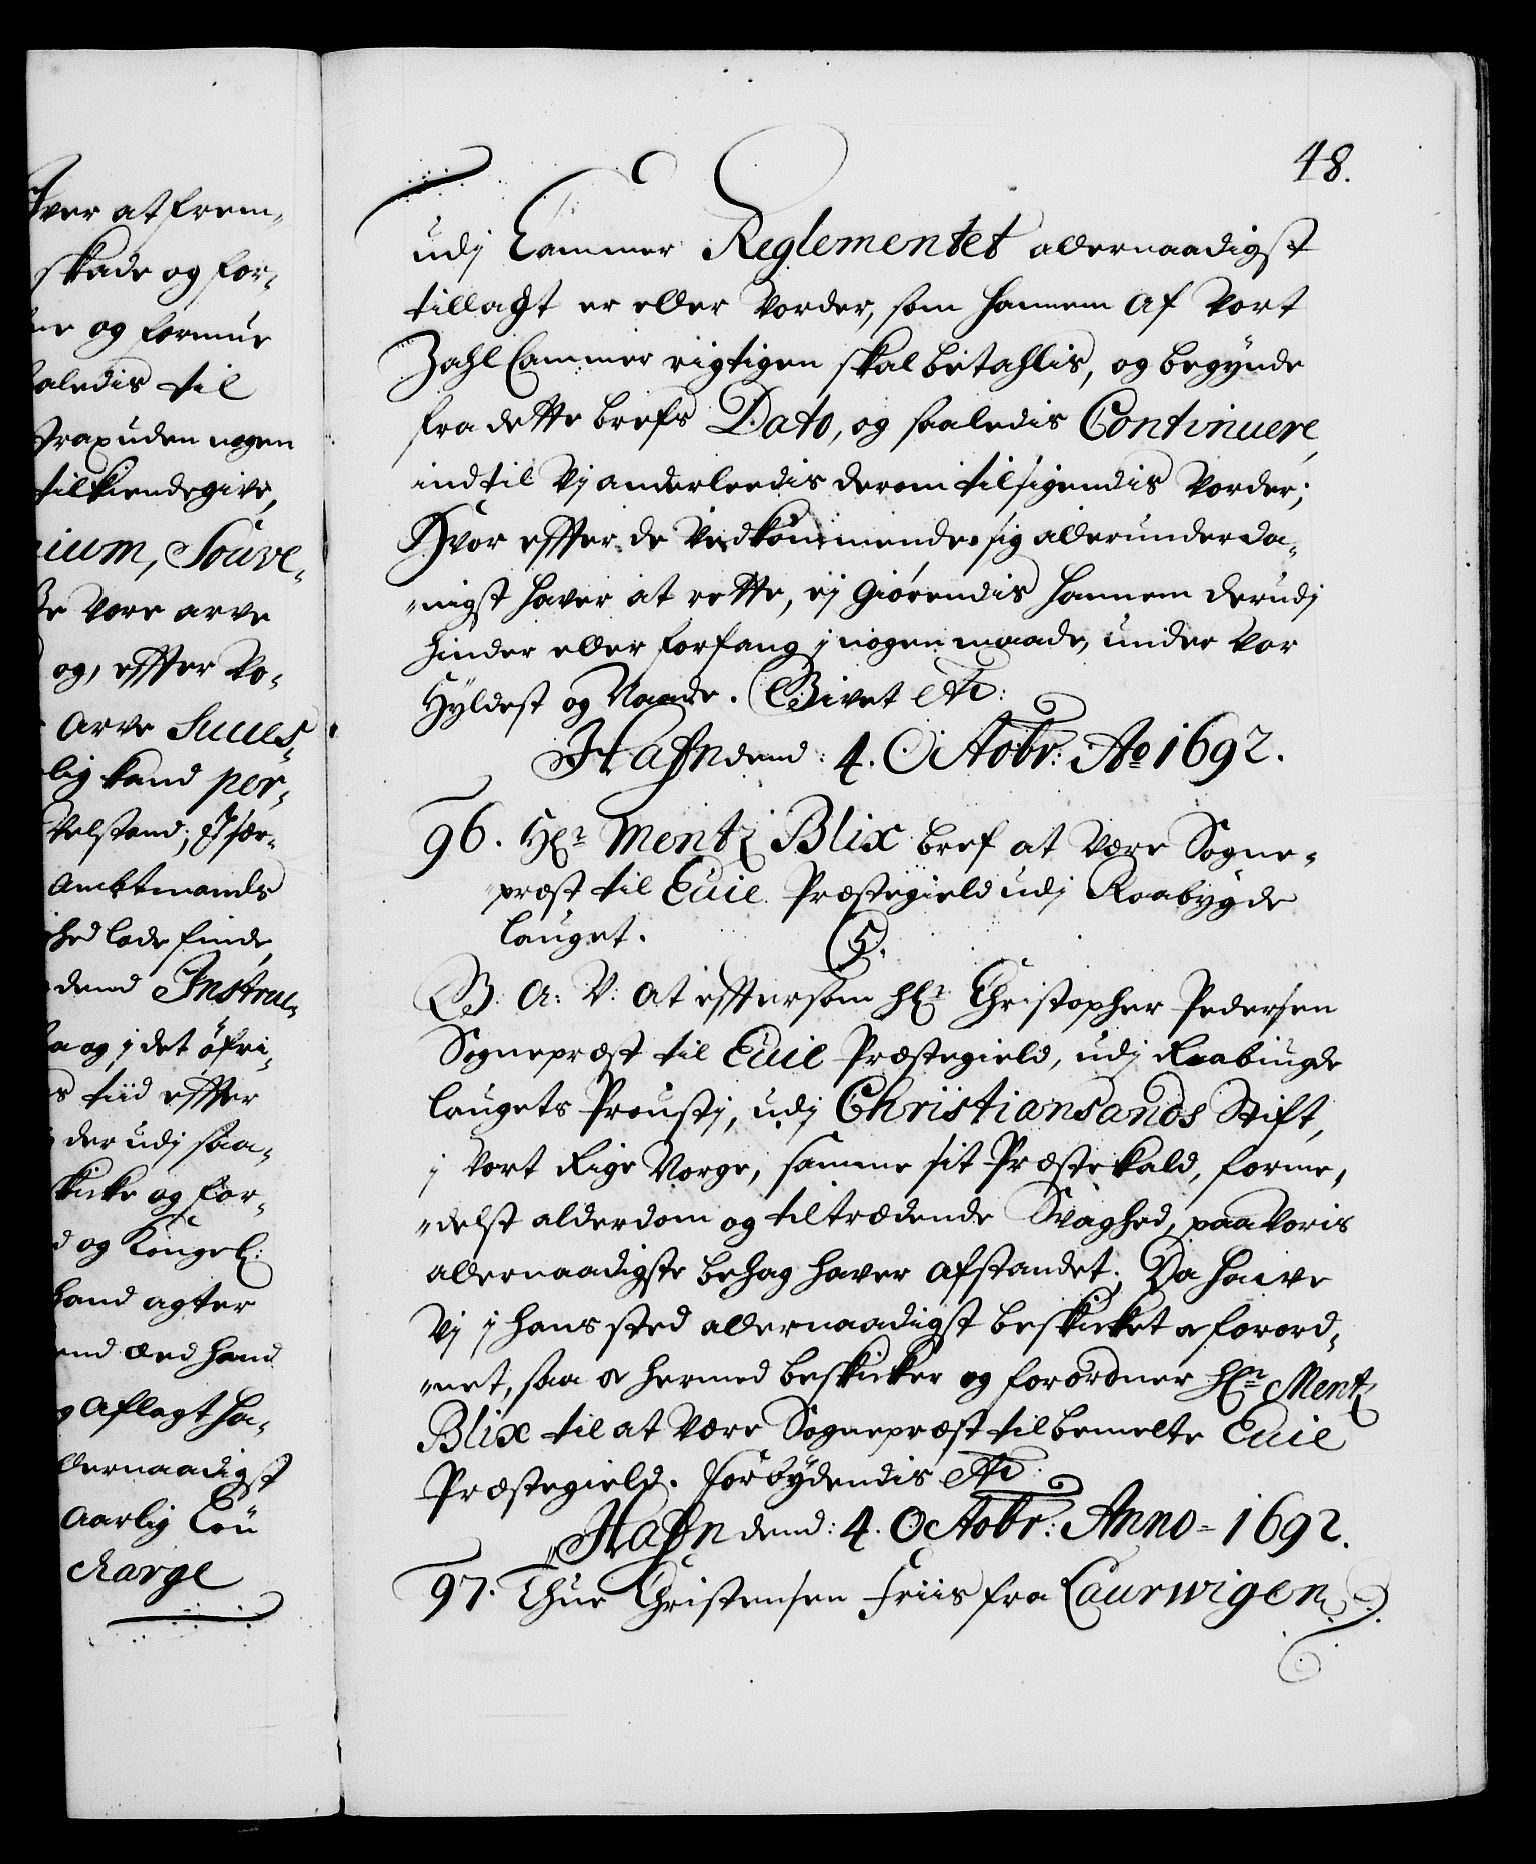 48.
udj Cammer Reglementet allernaadigst
tillagt er eller vorder, som hannem af vort
Zahl Cammer rigtigen skal betahlis, og begynde
fra dette brefs Dato, og saaledis Continuere,
indtil Vj anderleedis derom tilsigendis vorder;
Hvor effter de Vedkommende sig allerunderda-
nigst haver at rette, ej giørendis hannem derudj
hinder eller forfang j nogen maade, under vor
Hyldest og Naade. Givet etc:
Hafn dend: 4. Octobr: Ao 1692.
96. Hr. Mentz Blix bref at være Sogne-
præst til Euie Præstegield udj Raabygde
lauget.
G. A. V: At efftersom Hr. Christopher Pedersen
Sognepræst til Euie Præstegield, udj Raabiugde
laugets Proustj, udj Christiansands Stift,
j vort Rige Norge, samme sit Præstekald, forme-
delst alderdom og tiltrædende Svaghed, paa voris
allernaadigste behag haver afstandet; Da have
Vj j hans sted allernaadigst beskicket oc forord-
net, saa oc hermed beskicker og forordner Hr. Mentz
Blix til at være Sognepræst til bemelte Euie
Præstegield. Forbydendis etc:
Hafn dend: 4. Octobr: Anno 1692.
97. Thue Christensen Friis fra Laurwigen
Iver at frem-
skade og for-
og formue
aledis til
strax uden nogen
tilkiendegive,
ium, Souve-
vore arve
og, effter Vo-
Arve Succes-
lig kand per-
Velstand; Især-
Ambtmands
hed lade finde,
dend Instruc-
og j det øfri-
s tiid effter
der udj saa-
skicke og for-
og Kongel:
hand agter
end Æed hand
aflagt ha-
llernaadigst
Aarlig Løn
charge